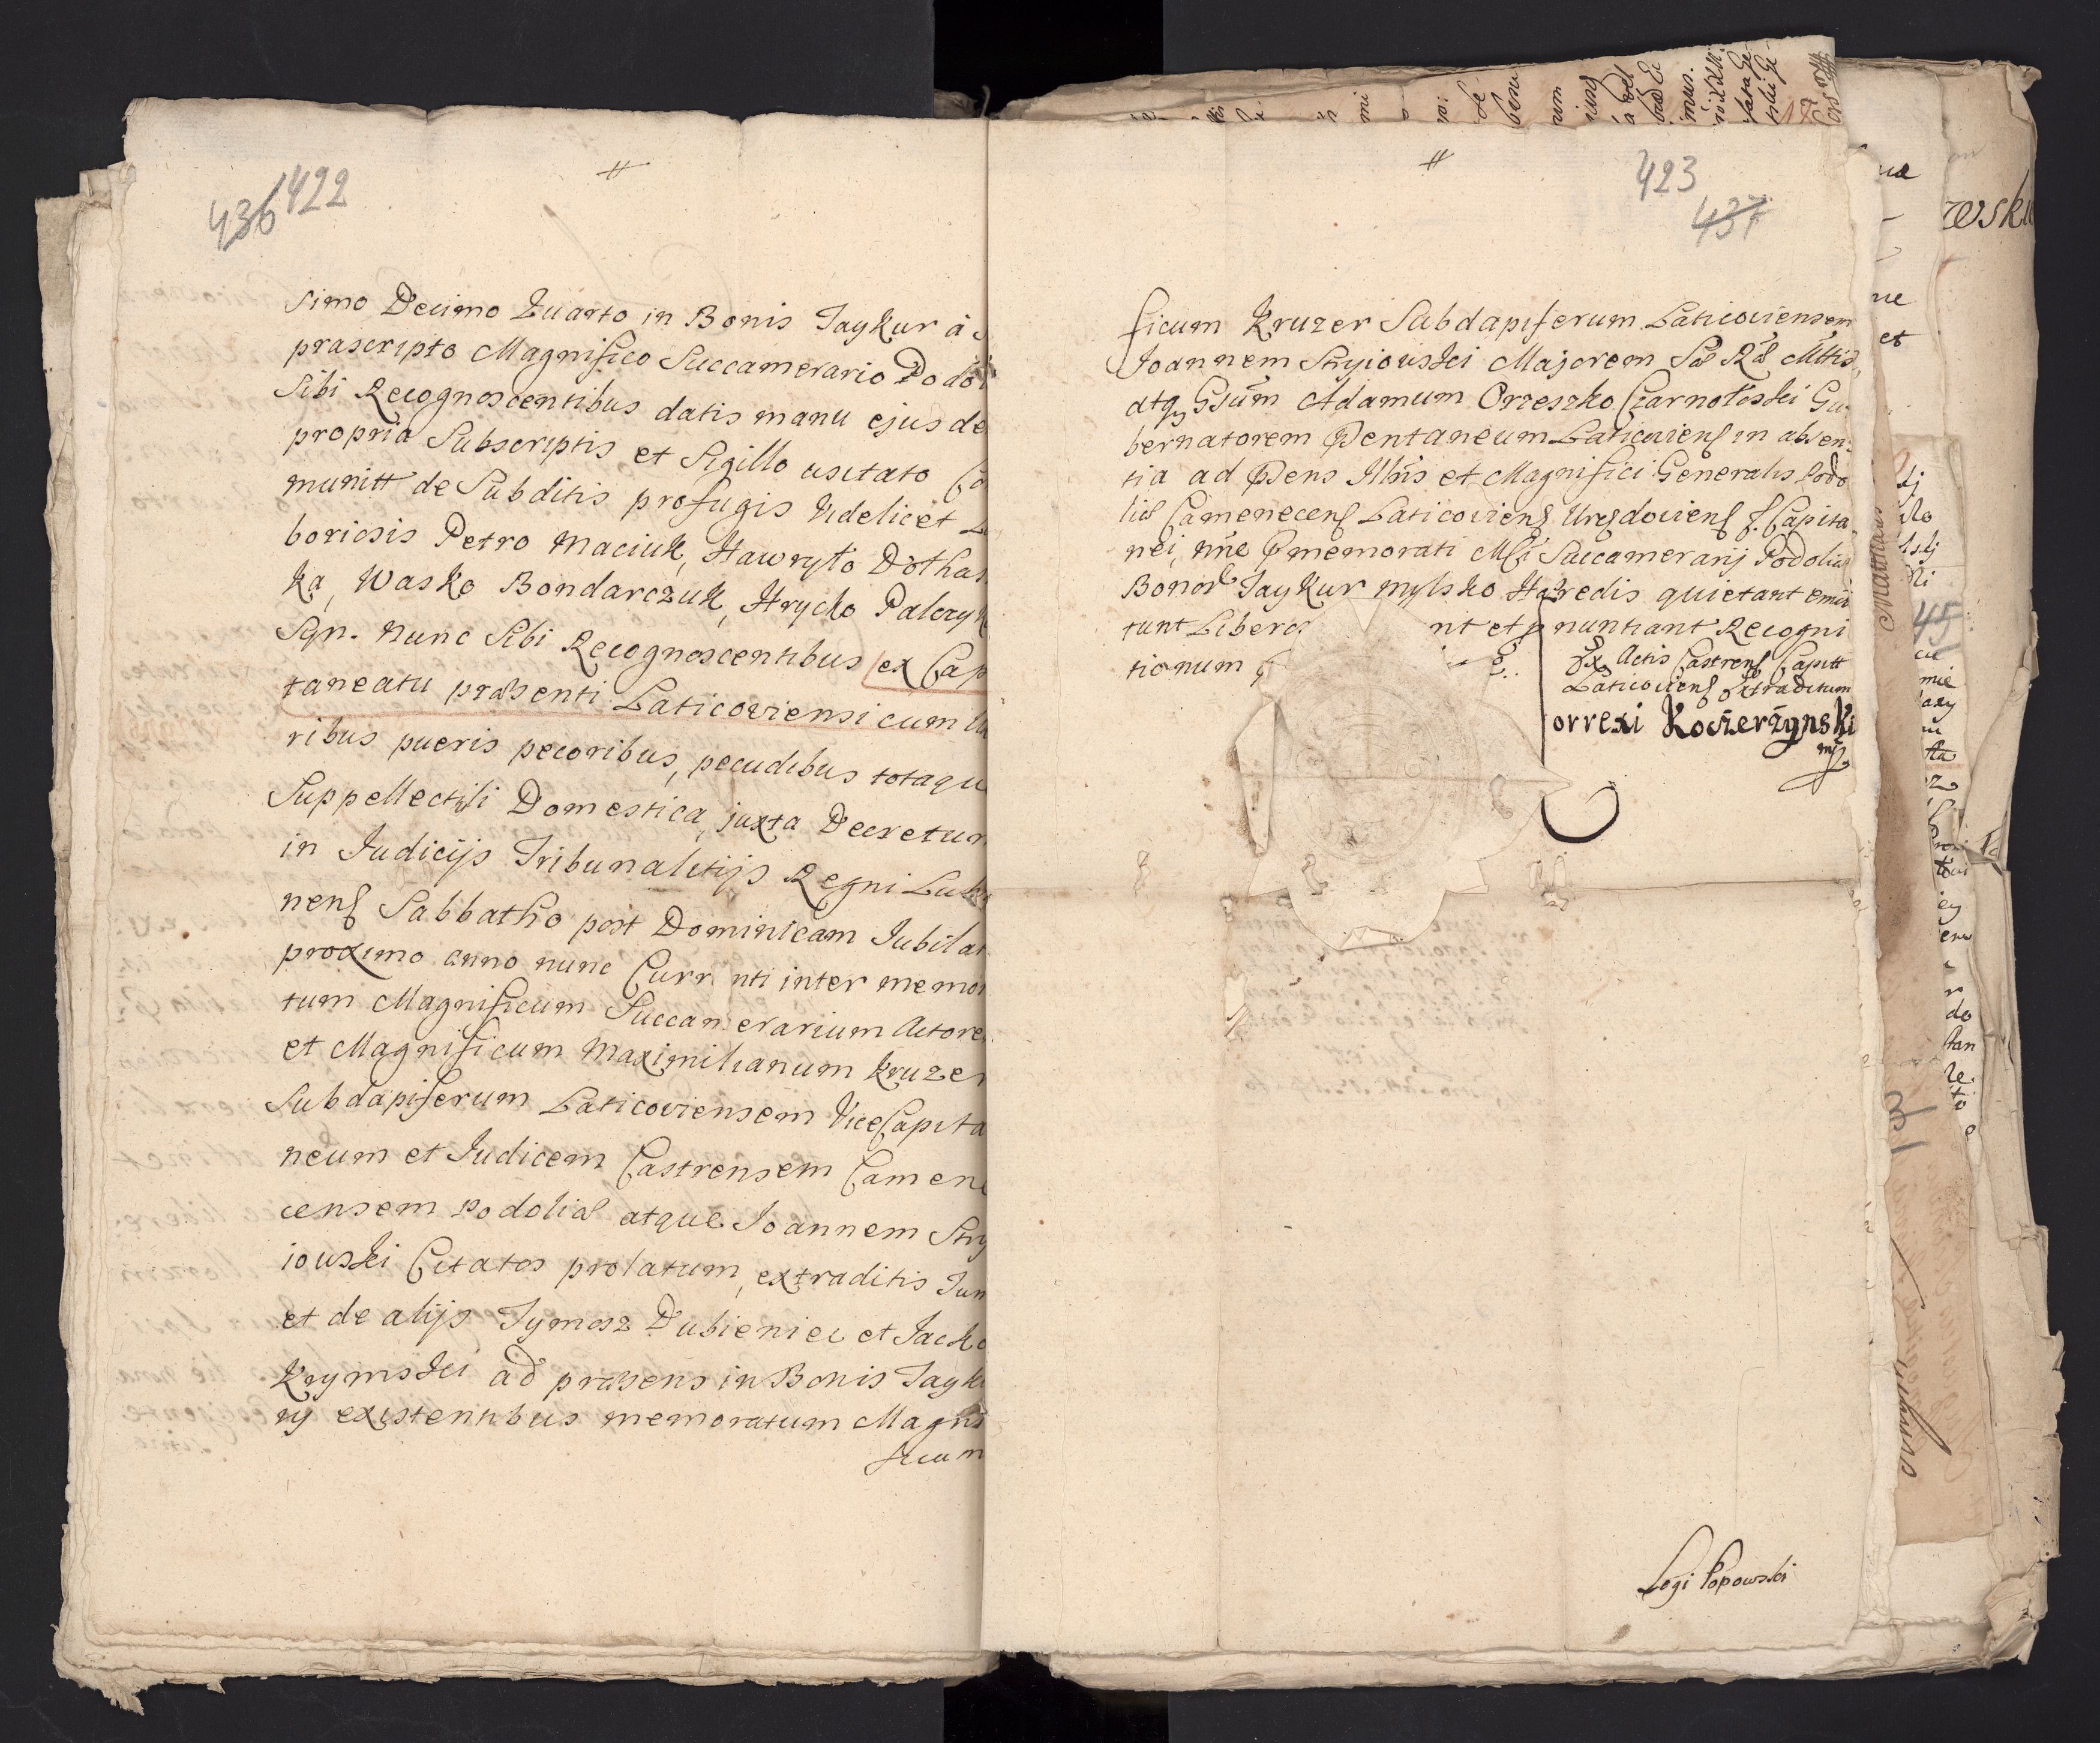 436 422
simo Decimo Quarto in Bonis Jaykur à
præscripto Magnifico Succamerario Podo
Sibi Recognoscentibus datis manu ejusde
propria Subscriptis et Sigillo usitato Co
munitt de Subditis profugis Videlicet La
boriosis Petro Maciuk, Hawryło Dołhas
ka, Wasko Bondarczuk, Hrycko Palczyk
Syn. Nunc Sibi Recognoscentibus ex Cap
taneatu præsenti Laticoviensi cum Ux
ribus pueris pecoribus, pecudibus totaqu
Suppellectili Domestica, juxta Decretum
in Judicijs Tribunalitijs Regni Lubl
nens Sabbatho post Dominicam Jubilat
proximo anno nunc Curr nti inter memor
tum Magnificum Succamerarium Actore
et Magnificum Maximilianum Kruzer
Subdapiferum Laticoviensem ViceCapita
neum et Judicem Castrensem Camene
censem Podoliæ atque Joannem Stry
iowski Citatos prolatum, extraditis Tum
et de alijs Tymosz Dubieniec et Jacko
Krymski ad præsens in Bonis Jayku
ry existentibus memoratum Magni
ficum
423
437
ficum Kruzer Subdapiferum Laticoviensem
Joannem Stryiowski Majorem Sæ Ræ Mttis,
atq Gsum Adamum Orzeszko Czarnołoski Gu
bernatorem Pentaneum Laticoviens in absen
tia ad Pens Illris et Magnifici Generalis Podo
liæ Camenecens Laticoviens Capita
nei, nne Pmemorati Mci Succamerarij Podoliæ
Bonor Jaykur Hæredis quietant emit
tunt Liber nt et p nuntiant Recogni
tionum
Ex Actis Castrens Capitt
Laticoviens Extraditum
orrexi Kosierzynski
mp
Legi Popowski